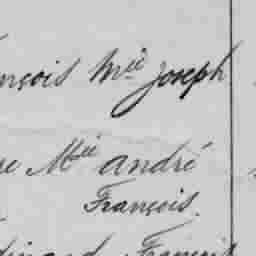 nçois Mrie Joseph
re Mie andré
François.
dinand François